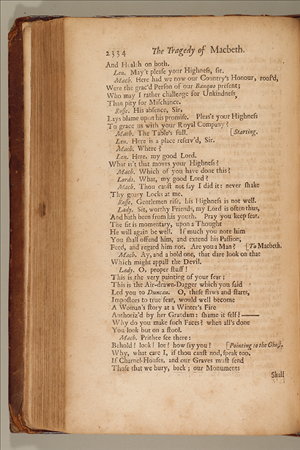 2334 The Tragedy of Macbeth.
And Health on both.
Len. May't please your Highness, sit.
Macb. Here had we now our Country's Honour, roof'd,
Were the grac'd Person of our Banquo present;
Who may I rather challenge for Unkindness,
Than pity for Mischance.
Rosse. His absence, Sir,
Lays blame upon his promise. Pleas't your Highness
To grace us with your Royal Company?
Macb. The Table's full. [Starting.
Len. Here is a place reserv'd, Sir.
Macb. Where?
Len. Here, my good Lord.
What is't that moves your Highness?
Macb. Which of you have done this?
Lords. What, my good Lord?
Macb. Thou canst not say I did it: never shake
Thy goary Locks at me.
Rosse. Gentlemen rise, his Highness is not well.
Lady. Sit, worthy Friends, my Lord is often thus,
And hath been from his youth. Pray you keep seat.
The fit is momentary, upon a Thought
He will again be well. If much you note him
You shall offend him, and extend his Passion;
Feed, and regard him not. Are you a Man? [To Macbeth.
Macb. Ay, and a bold one, that dare look on that
Which might appall the Devil.
Lady. O, proper stuff!
This is the very painting of your fear;
This is the Air-drawn-Dagger which you said
Led you to Duncan. O, these flaws and starts,
Impostors to true fear, would well become
A Woman's story at a Winter's Fire
Authoriz'd by her Grandam: shame it self!——
Why do you make such Faces? when all's done
You look but on a stool.
Macb. Prithee see there:
Behold! look! loe! how say you? [Pointing to the Ghost.
Why, what care I, if thou canst nod, speak too.
If Charnel-Houses, and our Graves must send
Those that we bury, back; our Monuments
Shall